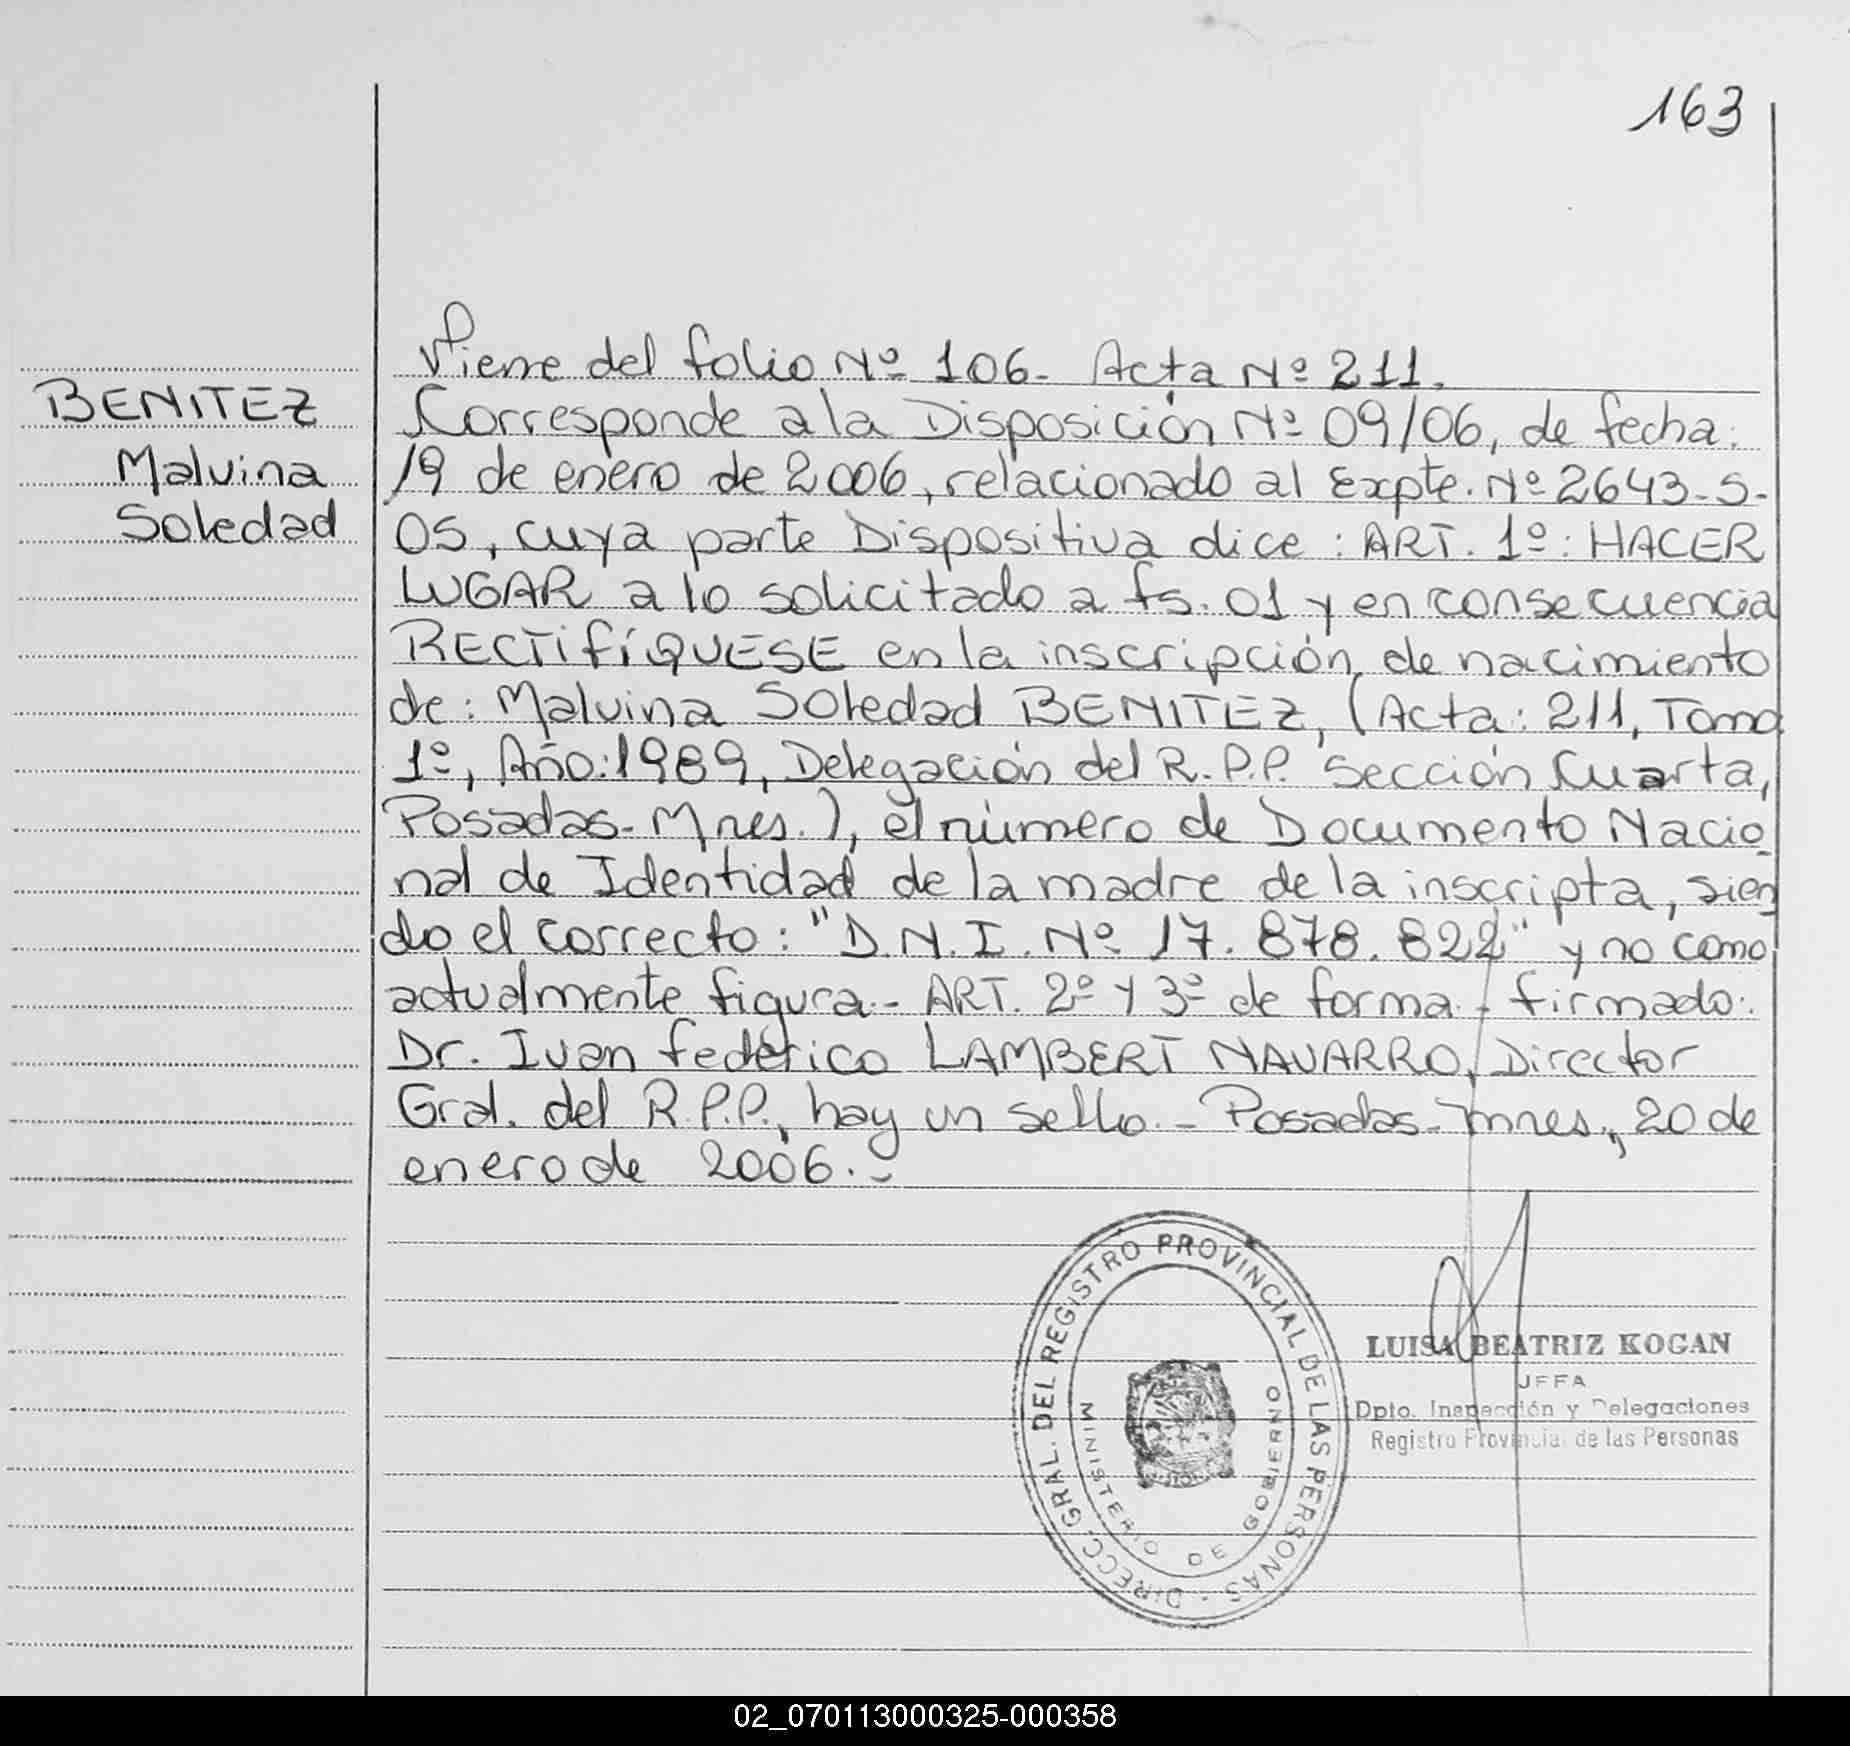 163
BENITEZ
Malvina
Soledad
Viene del folio Nº 106- Acta Nº 211.
Corresponde a la Disposición Nº 09/06, de fecha:
19 de enero de 2006, relacionado al Expte. Nº 2643-S-
05, cuya parte Dispositiva dice: ART. 1º: HACER
LUGAR a lo solicitado a fs. 01 y en consecuencia
RECTIFÍQUESE en la inscripción de nacimiento
de: Malvina Soledad BENITEZ, (Acta: 211, Tomo
1º, Año: 1989, Delegación del R.P.P. Sección Cuarta,
Posadas-Mnes.), el número de Documento Nacio-
nal de Identidad de la madre de la inscripta, sien
do el correcto: "D.N.I. Nº 17.878.822" y no como
actualmente figura.- ART. 2º y 3º de forma.- firmado:
Dr. Ivan federico LAMBERT NAVARRO, Director
Gral. del R.P.P., hay un sello.- Posadas-Mnes., 20 de
enero de 2006.-
DIRECC. GRAL. DEL REGISTRO PROVINCIAL DE LAS PERSONAS
MINISTERIO DE GOBIERNO
LUISA BEATRIZ KOGAN
JEFA
Dpto. Inspección y Delegaciones
Registro Provincial de las Personas
02_070113000325-000358